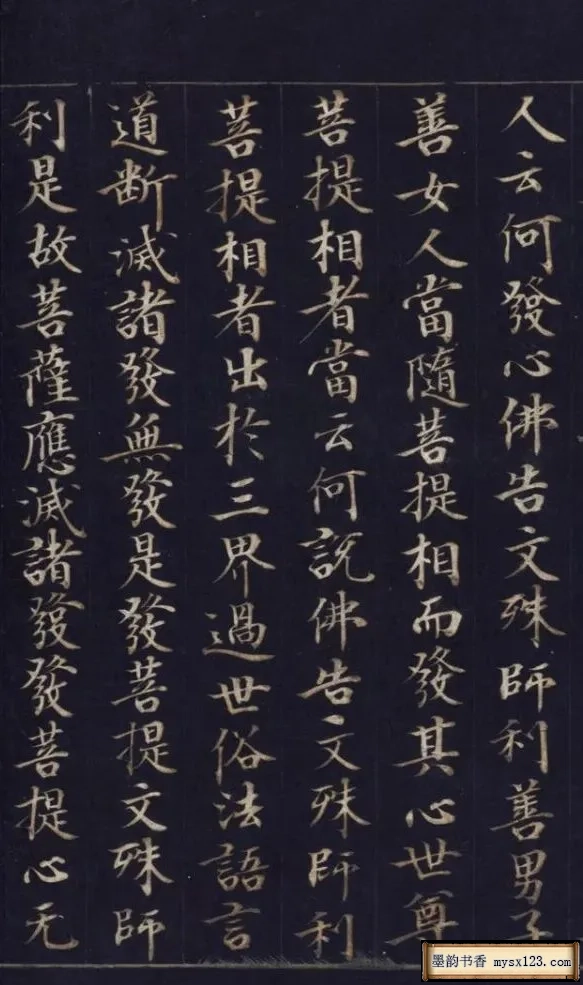 人云何發心佛告文殊師利善男子
善女人當隨菩提相而發其心世尊
菩提相者當云何說佛告文殊師利
菩提相者出於三界過世俗法語言
道断滅諸發無發是發菩提文殊師
利是故菩薩應滅諸發發菩提心无
墨韵书香 mysx123.com